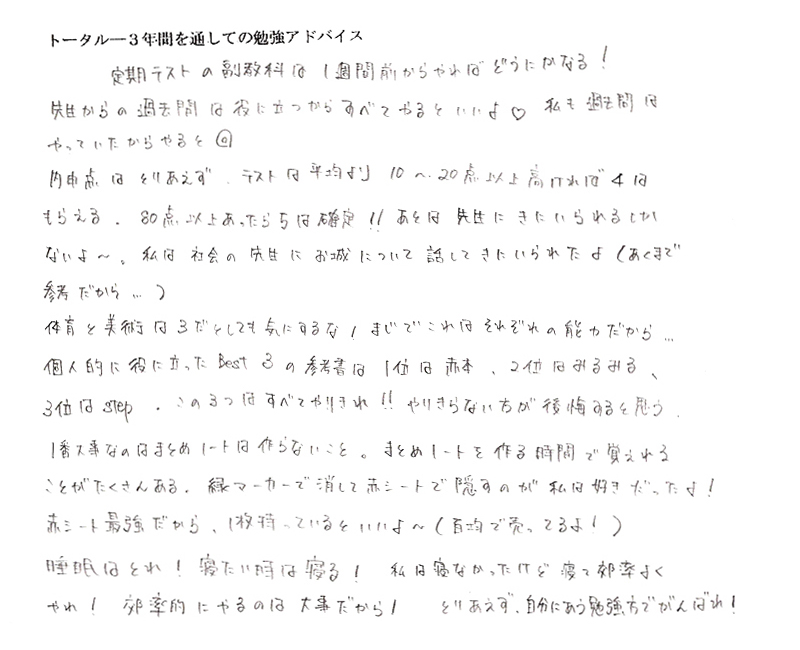 トータル―3年間を通しての勉強アドバイス
定期テストの副教科は1週間前からやればどうにかなる!
先生からの過去問は役に立つからすべてやるといいよ♡ 私も過去問は
やっていたからやると◎
内申点はとりあえず、テストは平均より10〜20点以上高ければ4は
もらえる。80点以上あったら5は確定!!あとは先生にきにいられるしか
ないよ〜。私は社会の先生にお城について話してきにいられたよ(あくまで
参考だから…)
体育と美術は3だとしても気にするな!まじでこれはそれぞれの能力だから…
個人的に役に立ったBest 3の参考書は1位は赤本、2位はみるみる、
3位はstep。この3つはすべてやりきれ!!やりきらない方が後悔すると思う。
1番大事なのはまとめノートは作らないこと。まとめノートを作る時間で覚えれる
ことがたくさんある。緑マーカーで消して赤シートで隠すのが私は好きだったよ!
赤シート最強だから、1枚持っているといいよ〜(百均で売ってるよ!)
睡眠はとれ!寝たい時は寝る!私は寝なかったけど寝て効率よく
やれ!効率的にやるのは大事だから!とりあえず、自分にあう勉強方でがんばれ!